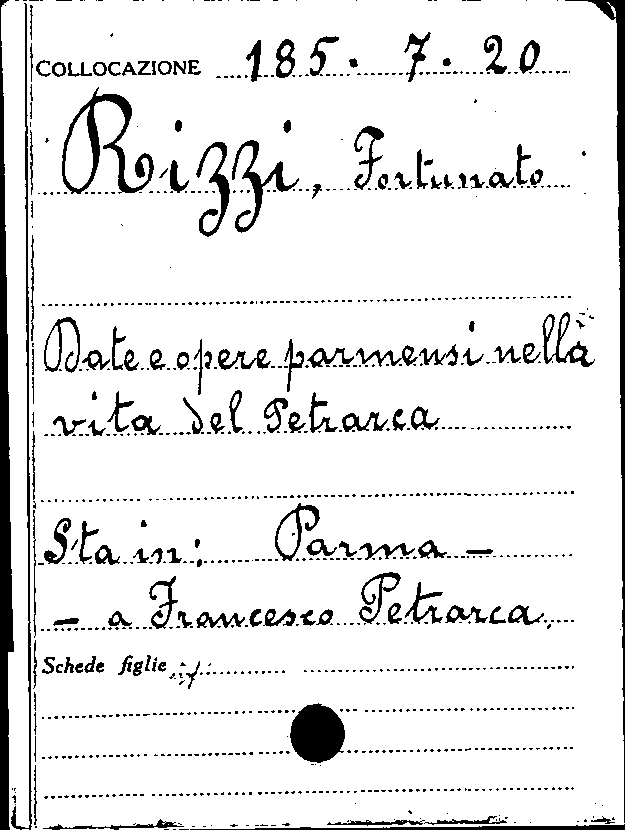 COLLOCAZIONE 185. 7. 20
Rizzi, Fortunato
Date e opere parmensi nella
vita del Petrarca
Sta in: Parma -
- a Francesco Petrarca.
Schede figlie